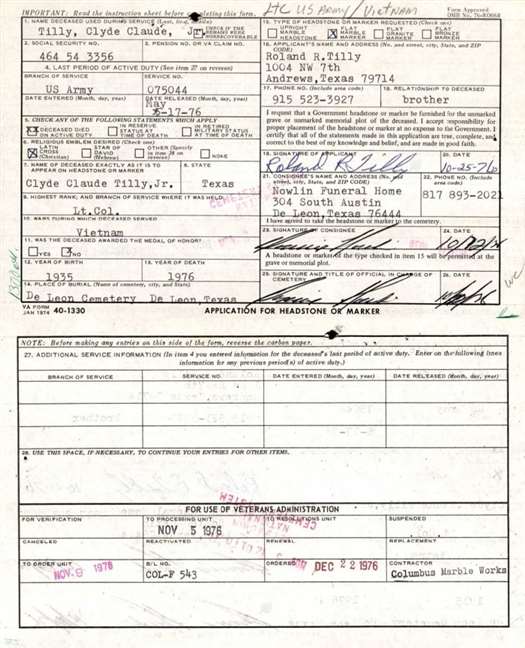 LTC US ARMY/VIETNAM
IMPORTANT: Read the instruction sheet before completing this form.
Form Approved
1. NAME DECEASED USED DURING SERVICE
Tilly, Clyde Claude, Jr.
CHECK IF THE REMAINS WERE NONRECOVERABLE
2. SOCIAL SECURITY NO.
464 54 3356
3. PENSION NO. OR VA CLAIM NO.
4. LAST PERIOD OF ACTIVE DUTY (See item 27 on reverse)
BRANCH OF SERVICE
US Army
SERVICE NO.
075044
DATE ENTERED (Month, day, year)
DATE RELEASED (Month, day, year)
May
5-17-76
5. CHECK ANY OF THE FOLLOWING STATEMENTS WHICH APPLY
XX DECEASED DIED ON ACTIVE DUTY
IN RESERVE STATUS AT TIME OF DEATH
IN RETIRED MILITARY STATUS AT TIME OF DEATH
6. RELIGIOUS EMBLEM DESIRED (Check one)
X LATIN CROSS (Christian)
STAR OF DAVID (Hebrew)
OTHER (Specify in item 28 on reverse)
NONE
7. NAME OF DECEASED EXACTLY AS IT IS TO APPEAR ON HEADSTONE OR MARKER
Clyde Claude Tilly,Jr.
8. STATE
Texas
9. HIGHEST RANK, AND BRANCH OF SERVICE WHERE IT WAS HELD.
Lt.Col.
10. WARS DURING WHICH DECEASED SERVED
Vietnam
11. WAS THE DECEASED AWARDED THE MEDAL OF HONOR?
YES
X NO
12. YEAR OF BIRTH
1935
13. YEAR OF DEATH
1976
14. PLACE OF BURIAL (Name of cemetery, city, and State)
De Leon Cemetery De Leon,Texas
15. TYPE OF HEADSTONE OR MARKER REQUESTED (Check one)
UPRIGHT MARBLE HEADSTONE
X FLAT MARBLE MARKER
FLAT GRANITE MARKER
FLAT BRONZE MARKER
16. APPLICANT'S NAME AND ADDRESS (No. and street, city, State, and ZIP CODE)
Roland R.Tilly
1004 NW 7th
Andrews,Texas 79714
17. PHONE NO. (Include area code)
915 523-3927
18. RELATIONSHIP TO DECEASED
brother
I request that a Government headstone or marker be furnished for the unmarked grave or unmarked memorial plot of the deceased. I accept responsibility for proper placement of the headstone or marker at no expense to the Government. I certify that all of the statements made in this application are true, complete, and correct to the best of my knowledge and belief, and are made in good faith.
19. SIGNATURE OF APPLICANT
Roland R. Tilly
20. DATE
10-25-76
21. CONSIGNEE'S NAME AND ADDRESS (No. and street, city, State, and ZIP CODE)
Nowlin Funeral Home
304 South Austin
De Leon,Texas 76444
22. PHONE NO. (Include area code)
817 893-2021
I have agreed to take the headstone or marker to the cemetery.
23. SIGNATURE OF CONSIGNEE
24. DATE
A headstone or marker of the type checked in item 15 will be permitted at the grave or memorial plot.
25. SIGNATURE AND TITLE OF OFFICIAL IN CHARGE OF CEMETERY
26. DATE
VA FORM
JAN 1974 40-1330
APPLICATION FOR HEADSTONE OR MARKER
NOTE: Before making any entries on this side of the form, reverse the carbon paper.
27. ADDITIONAL SERVICE INFORMATION (In item 4 you entered information for the deceased's last period of active duty. Enter on the following lines information for any previous period(s) of active duty.)
BRANCH OF SERVICE
SERVICE NO.
DATE ENTERED (Month, day, year)
DATE RELEASED (Month, day, year)
28. USE THIS SPACE, IF NECESSARY, TO CONTINUE YOUR ENTRIES FOR OTHER ITEMS.
FOR USE OF VETERANS ADMINISTRATION
FOR VERIFICATION
TO PROCESSING UNIT
NOV 5 1976
TO RESOLUTIONS UNIT
SUSPENDED
CANCELED
REACTIVATED
RENEWAL
REPLACEMENT
TO ORDER UNIT
NOV. 9 1976
B/L NO.
COL-F 543
ORDERED
DEC 22 1976
CONTRACTOR
Columbus Marble Works